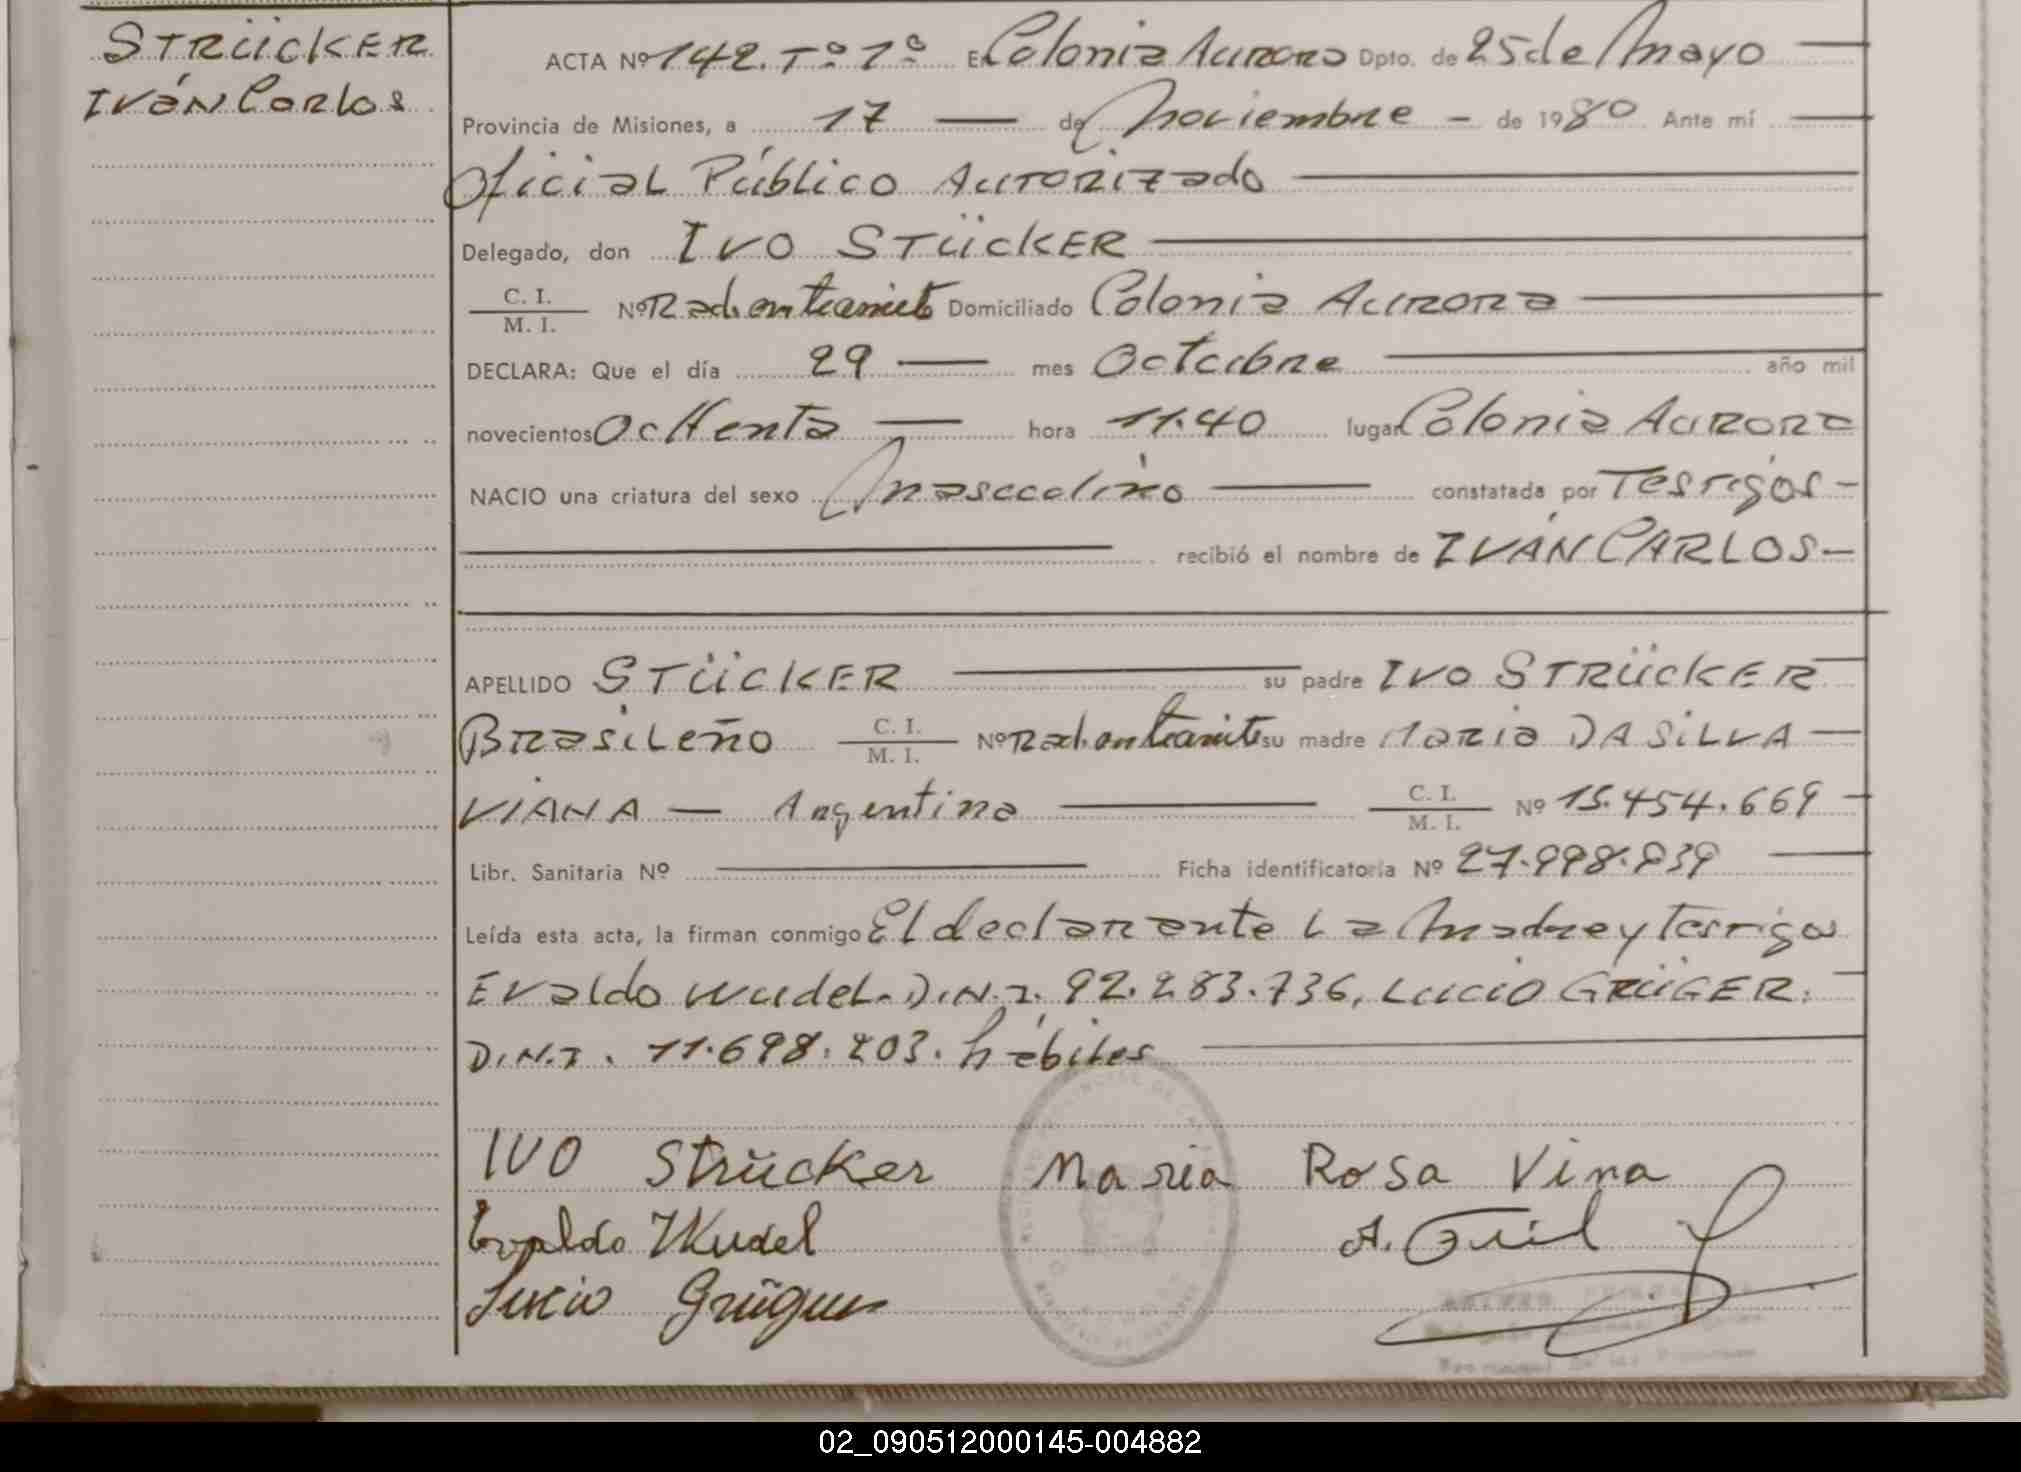 STRÜCKER
Iván Carlos
ACTA Nº 142. Tº 1º En Colonia Aurora Dpto. de 25 de Mayo
Provincia de Misiones, a 17 de Noviembre de 1980 Ante mí
Oficial Público Autorizado
Delegado, don IVO STÜCKER
C. I.
M. I. Nº Rad. en tramite Domiciliado Colonia Aurora
DECLARA: Que el día 29 mes Octubre año mil
novecientos Ochenta hora 11.40 lugar Colonia Aurora
NACIO una criatura del sexo Masculino constatada por Testigos
recibió el nombre de IVÁN CARLOS
APELLIDO STÜCKER su padre IVO STRÜCKER
Brasileño C. I. M. I. Nº Rad. en tramite su madre Maria DA SILVA
VIANA Argentina C. I. M. I. Nº 15.454.669
Libr. Sanitaria Nº Ficha identificatoria Nº 27.998.939
Leída esta acta, la firman conmigo El declarante La Madre y Testigos
Evaldo Wudel. D.N.I. 92.283.736, Lucio GRÜGER.
D.N.I. 11.698.203. hábiles
IVO Strücker Maria Rosa Vina
Evaldo Wudel
Lucio Grüger
02_090512000145-004882